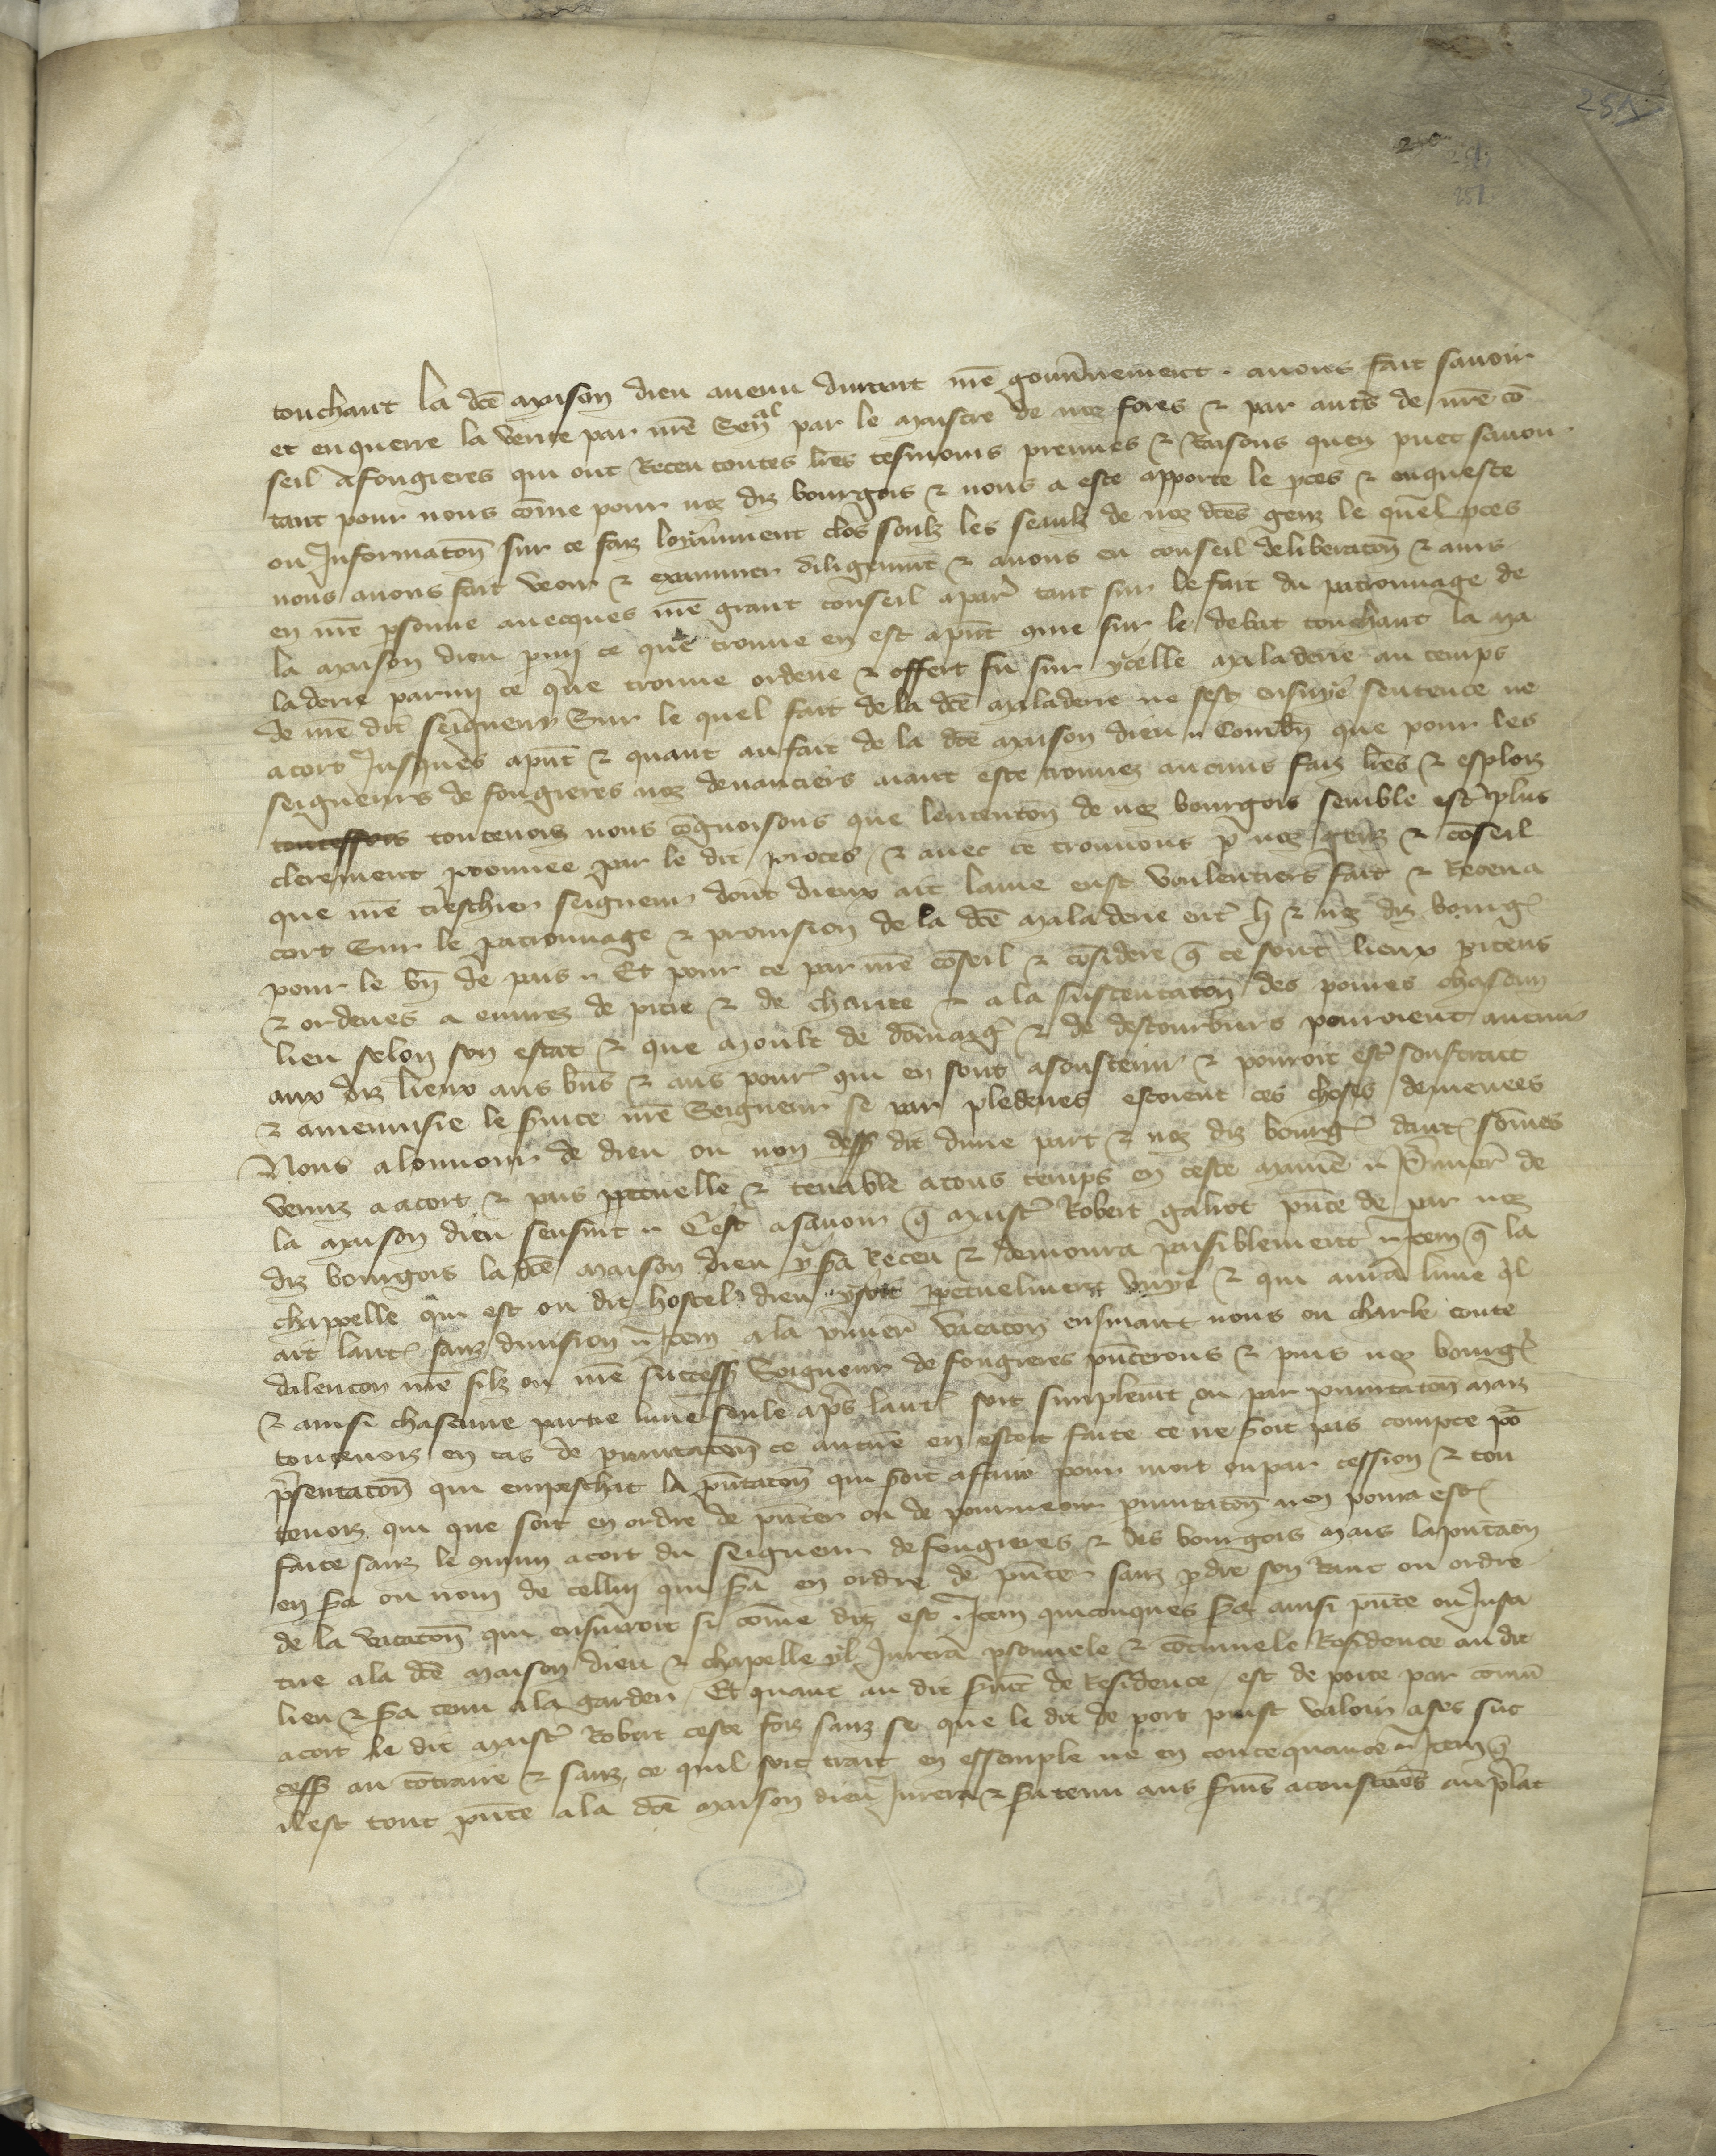 251
250
251
251
touchant la dce maison dieu auenu durant nre gouunement . auons fait sauoir
et enquerre la verite par nre Senal par le maistre de nez fores & par autes de nre co
seil a fougieres qui ont Receu toutes lres tesmoins preuues & Raisons quen puet sauoir
tant pour nous come pour nez diz bourgois & nous a este apporte le pces & enqueste
ou Informaton sur ce faiz loyaument clos soulz les seaulz de nez dces genz le quel pces
nous auons fait veoir & examiner diligenment & auons eu conseil deliberaton & auis
en nre psonne auecques nre grant conseil apart tant sur le fait du patronnage de
la maison dieu pmy ce que trouue en est apnt que sur le debat touchant la ma
laderie parmy ce que trouue ordene & offert fu sur ycelle maladerie au temps
de nre dit seigneur Sur le quel fait de la dce maladerie ne sest ensuye sentence ne
acort Jusques apnt & quant au fait de la dce maison dieu Combn que pour les
seigneurs de fougieres nez deuanciers aient este trouuez aucuns faiz lres & esploiz
toutesfois toutenoiz nous cognoissons que lententon de nez bourgois semble estre plus
clerement prouuee par le dit proces & auec ce trouuons p nez genz & coseil
que nre treschier seigneur dont dieux ait lame eust voulentiers fait & Receu a
cort Sur le patronnage & prouision de la dce maladerie entr li & nez diz bourg
pour le bn de pais Et pour ce par nre coseil & cosidere q ce sont lieux piteus
& ordenes a euures de pitie & de charite & a la sustentaton des poures chascun
lieu selon son estat & que moult de domaige & de destourbiers pouroient auenir
aux diz lieux aus bns & aus pours qui en sont asoustenir & pouroit estre soustrait
& amenuisie le suice nre Seigneur se par plederies estoient ces choses demenees
Nous a lonnour de dieu ou non dess dit dune part & nez diz bourg dautre somes
venuz a acort & pais ppetuelle & tenable a tous temps en ceste maniere Prmier de
la maison dieu sensuit Cest asauoir q maistr Robert galiot pnte de par nez
diz bourgois la dce maison dieu y sa Receu & demoura paisiblement Item q la
chappelle qui est ou dit hostel dieu y soit ppetuelment vnye & qui aura lune ql
ait lautre sanz diuision Item a la pmier vacaton ensuiant nous ou charle conte
dalencon nre filz ou nre success Seigneur de fougieres pnterons & puis nez bourg
& ainsi chascune partie lune seule apres lautre soit simplemt ou par pmutaton maiz
toutenoiz en cas de pmutaton ce aucune en estoit faite ce ne soit pas compte po
psentaton qui empeschat la pntaton qui soit afaire pour mort ou par cession & tou
tenoiz qui que soit en ordre de pnter ou de pourueoir pmutaton nen poura estre
faite sanz le comun acort du seigneur de fougieres & des bourgois mais la pntaton
en sa ou nom de celluy qui sa en ordre de pnter sanz pdre son Ranc ou ordre
de la vacaton qui ensuiroit si come dit est Item quiconques sa ainsi pnte ou Insti
tue a la dce maison dieu & chapelle yl Jurera psonnele & continuele Residence au dit
lieu & sa tenu a la garder Et quant au dit smt de Residence est de porte par comun
acort le dit maistr Robert ceste foiz sanz se que le dit de port puist valoir a ses suc
cess au contraire & sanz ce quil soit trait en essemple ne en consequance Item q
il est tout pnte a la dce maison dieu Jurera & sa tenu aus smens acoustumes au prelat